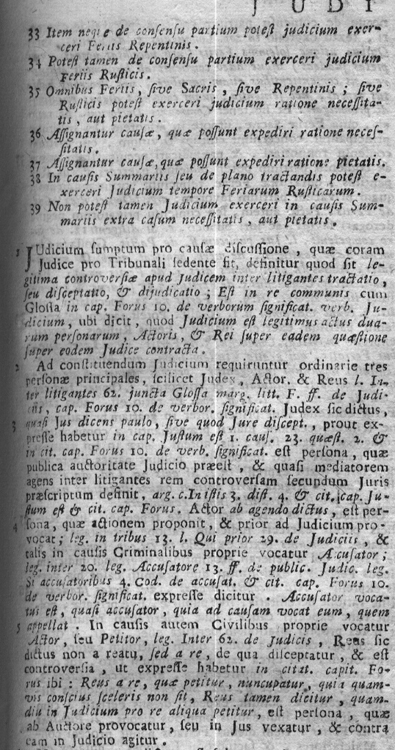 JUDI
33 Item neque de consensu partium potest judicium exer-
ceri Feriis Repentinis.
34 Potest tamen de consensu partium exerceri judicium
Feriis Rusticis.
35 Omnibus Feriis, sive Sacris, sive Repentinis; sive
Rusticis potest exerceri judicium ratione necessita-
tis, aut pietatis.
36 Assignantur causæ, quæ possunt expediri ratione neces-
sitatis.
37 Assignantur causæ, quæ possunt expediri ratione pietatis.
38 In causis Summariis seu de plano tractandis potest e-
xerceri Judicium tempore Feriarum Rusticarum.
39 Non potest tamen Judicium exerceri in causis Sum-
mariis extra casum necessitatis, aut pietatis.
1 JUdicium sumptum pro causæ discussione, quæ coram
Judice pro Tribunali sedente fit, definitur quod sit le-
gitima controversiæ apud Judicem inter litigantes tractatio,
seu disceptatio, & dijudicatio; Est in re communis cum
Glossa in cap. Forus 10. de verborum significat. verb. Ju-
dicium, ubi dicit, quod Judicium est legitimus actus dua-
rum personarum, Actoris, & Rei super eadem quæstione
super eodem Judice contracta.
2 Ad constituendum Judicium requiruntur ordinarie tres
personæ principales, scilicet Judex, Actor, & Reus l. In-
ter litigantes 62. juncta Glossa marg. litt. F. ff. de Judi-
ciis, cap. Forus 10. de verbor. significat. Judex sic dictus,
3 quasi Jus dicent paulo, sive quod Jure discept., prout ex-
presse habetur in cap. Justum est 1. caus. 23. quæst. 2. &
in cit. cap. Forus 10. de verb. significat. est persona, quæ
publica auctoritate Judicio præest, & quasi mediatorem
agens inter litigantes rem controversam secundum Juris
præscriptum definit, arg. c. In istis 3. dist. 4. & cit. cap. Ju-
stum est & cit. cap. Forus. Actor ab agendo dictus, est per-
4 sona, quæ actionem proponit, & prior ad Judicium pro-
vocat; leg. in tribus 13. l. Qui prior 29. de Judiciis, &
talis in causis Criminalibus proprie vocatur Accusator;
leg. inter 20. leg. Accusatore 13. ff. de public. Judic. leg.
Si accusatoribus 4. Cod. de accusat. & cit. cap. Forus 10.
de verbor. significat. expresse dicitur. Accusator voca-
tus est, quasi accusator, quia ad causam vocat eum, quem
5 appellat. In causis autem Civilibus proprie vocatur
Actor, seu Petitor, leg. Inter 62. de Judiciis, Reus sic
dictus non a reatu, sed a re, de qua disceptatur, & est
controversia, ut expresse habetur in citat. capit. Fo-
rus ibi: Reus a re, quæ petitur, nuncupatur, quia quam-
vis conscius sceleris non sit, Reus tamen dicitur, quam-
diu in Judicium pro re aliqua petitur, est persona, quæ
ab Auctore provocatur, seu in Jus vexatur, & contra
eam in Judicio agitur.